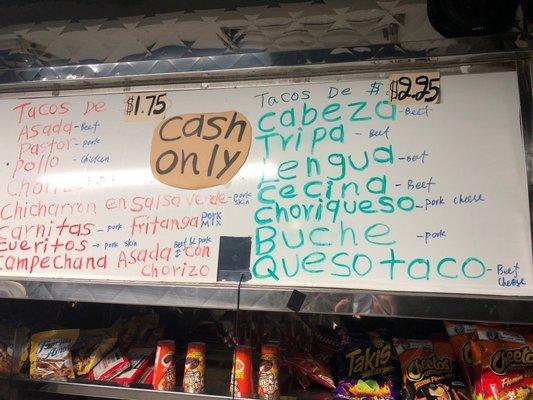 Tacos De $1.75
Asada - Beef
Pastor - pork
Pollo - chicken
Chicharron en salsa verde - pork skin
Carnitas - pork Fritanga pork mix
Cueritos → pork skin
Campechana Asada Beef & pork con
chorizo
cash
only
Tacos De $ $2.25
Cabeza - Beef
Tripa - Beef
Lengua - Beef
Cecina - Beef
Choriqueso - pork cheese
Buche - pork
Quesotaco - Beef cheese
Takis
Cheetos
Cheetos